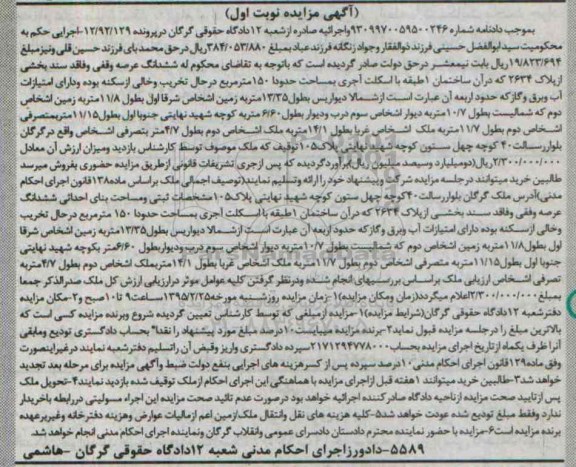 (آگهی مزایده نوبت اول)
بموجب دادنامه شماره ۹۳۰۹۹۷۰۰۵۹۵۰۰۲۴۶ واجرائیه صادره ازشعبه ۱۲دادگاه حقوقی گرگان درپرونده ۱۲/۹۲/۱۲۹-اجرایی حکم به
محکومیت سیدابوالفضل حسینی فرزند ذوالفقار وجواد زنگانه فرزند عباد بمبلغ ۳۸۴/۰۵۳/۸۸۰ریال درحق محمد بای فرزند حسین قلی ونیزمبلغ
۱۹/۸۲۳/۶۹۴ریال بابت نیمعشر درحق دولت صادر گردیده است که باتوجه به تقاضای محکوم له ششدانگ عرصه وقفی وفاقد سند بخشی
ازپلاک ۲۶۳۴ که درآن ساختمان ۱طبقه با اسکلت آجری بمساحت حدودا ۱۵۰مترمربع درحال تخریب وخالی ازسکنه بوده ودارای امتیازات
آب وبرق وگازکه حدود اربعه آن عبارت است ازشمالا دیواریس بطول۱۳/۳۵متربه زمین اشخاص شرقا اول بطول ۱۱/۸متربه زمین اشخاص
دوم که شمالیست بطول ۱۰/۷متربه دیوار اشخاص سوم درب ودیوار بطول ۶/۶۰متربه کوچه شهید نهایتی جنوبا اول بطول۱۱/۱۵متربمتصرفی
اشخاص دوم بطول ۱۱/۷متربه ملک اشخاص غربا بطول ۱۴/۱متربه ملک اشخاص دوم بطول ۴/۷متر بتصرفی اشخاص واقع درگرگان
بلواررسالت۴۰ کوچه چهل ستون کوچه شهید نهایتی پلاک۱۰۵توقیف که ملک موصوف توسط کارشناس بازدید ومیزان ارزش آن معادل
۲/۳۰۰/۰۰۰/۰۰۰ریال(دومیلیارد وسیصد میلیون ریال)برآوردگردیده که پس ازجری تشریفات قانونی ازطریق مزایده حضوری بفروش میرسد
طالبین خرید میتوانند درجلسه مزایده شرکت وپیشنهاد خود را ارائه وتسلیم نمایند(توصیف اجمالی ملک براساس ماده۱۳۸قانون اجرای احکام
مدنی)آدرس ملک گرگان بلواررسالت۴۰کوچه چهل ستون کوچه شهید نهایتی پلاک۱۰۵مشخصات ثبتی ومساحت بنای احداثی ششدانگ
عرصه وقفی وفاقد سند بخشی ازپلاک ۲۶۳۴ که درآن ساختمان ۱طبقه بااسکلت آجری بمساحت حدودا ۱۵۰ مترمربع درحال تخریب
وخالی ازسکنه بوده دارای امتیازات آب وبرق وگازکه حدود اربعه آن عبارت است ازشمالا دیواریس بطول۱۳/۳۵متربه زمین اشخاص شرقا
اول بطول۱۱/۸متربه زمین اشخاص دوم که شمالیست بطول ۱۰/۷متربه دیوار اشخاص سوم درب ودیواربطول ۶/۶۰متر بکوچه شهید نهایتی
جنوبا اول بطول۱۱/۱۵متربه متصرفی اشخاص دوم بطول ۱۱/۷متربه ملک اشخاص غربا بطول ۱۴/۱متربملک اشخاص دوم بطول ۴/۷متربه
تصرفی اشخاص ارزیابی ملک براساس بررسیهای انجام شده ودرنظر گرفتن کلیه عوامل موثر درارزیابی ارزش کل ملک صدرالذکر جمعا
بمبلغ۲/۳۰۰/۰۰۰/۰۰۰اعلام میگردد(زمان ومکان مزایده)۱-زمان مزایده روزشنبه مورخه۱۳۹۵/۲/۲۵ساعت۹ تا۱۰صبح و۲-مکان مزایده
دفترشعبه ۱۲دادگاه حقوقی گرگان(شرایط مزایده)۱-مزایده ازمبلغی که توسط کارشناس تعیین گردیده شروع وبرنده مزایده کسی است که
بالاترین مبلغ را درجلسه مزایده قبول نماید۲-برنده مزایده میبایست۱۰درصد مبلغ مورد پیشنهاد را نقدا" بحساب دادگستری تودیع ومابقی
آنرا ظرف یکماه ازتاریخ اجرای مزایده بحساب۲۱۷۱۲۹۴۷۷۸۰۰۰سپرده دادگستری واریز وقبض آن راتسلیم دفترشعبه نمایند درغیراینصورت
وفق ماده۱۲۹قانون اجرای احکام مدنی۱۰درصد سپرده پس از کسرهزینه های اجرایی بنفع دولت ضبط وآگهی مزایده برای مرحله بعد تجدید
خواهد شد۳-طالبین خرید میتوانند ۱هفته قبل ازاجرای مزایده با هماهنگی این اجرای احکام ازملک توقیف شده بازدید نمایند۴-تحویل ملک
پس ازتایید صحت مزایده ازناحیه دادگاه صادرکننده اجرائیه خواهد بود درصورت عدم تائید صحت مزایده این اجراء مسولیتی دررابطه باخریدار
ندارد وفقط مبلغ تودیع شده عودت خواهد شد۵-کلیه هزینه های نقل وانتقال ملک/زمین اعم ازمالیات عوارض وهزینه دفترخانه وغیربرعهده
برنده مزایده است۶-مزایده با حضور نماینده محترم دادستان دادسرای عمومی وانقلاب گرگان ونماینده اجرای احکام مدنی انجام خواهد شد.
۵۵۸۹-دادورزاجرای احکام مدنی شعبه ۱۲دادگاه حقوقی گرگان -هاشمی